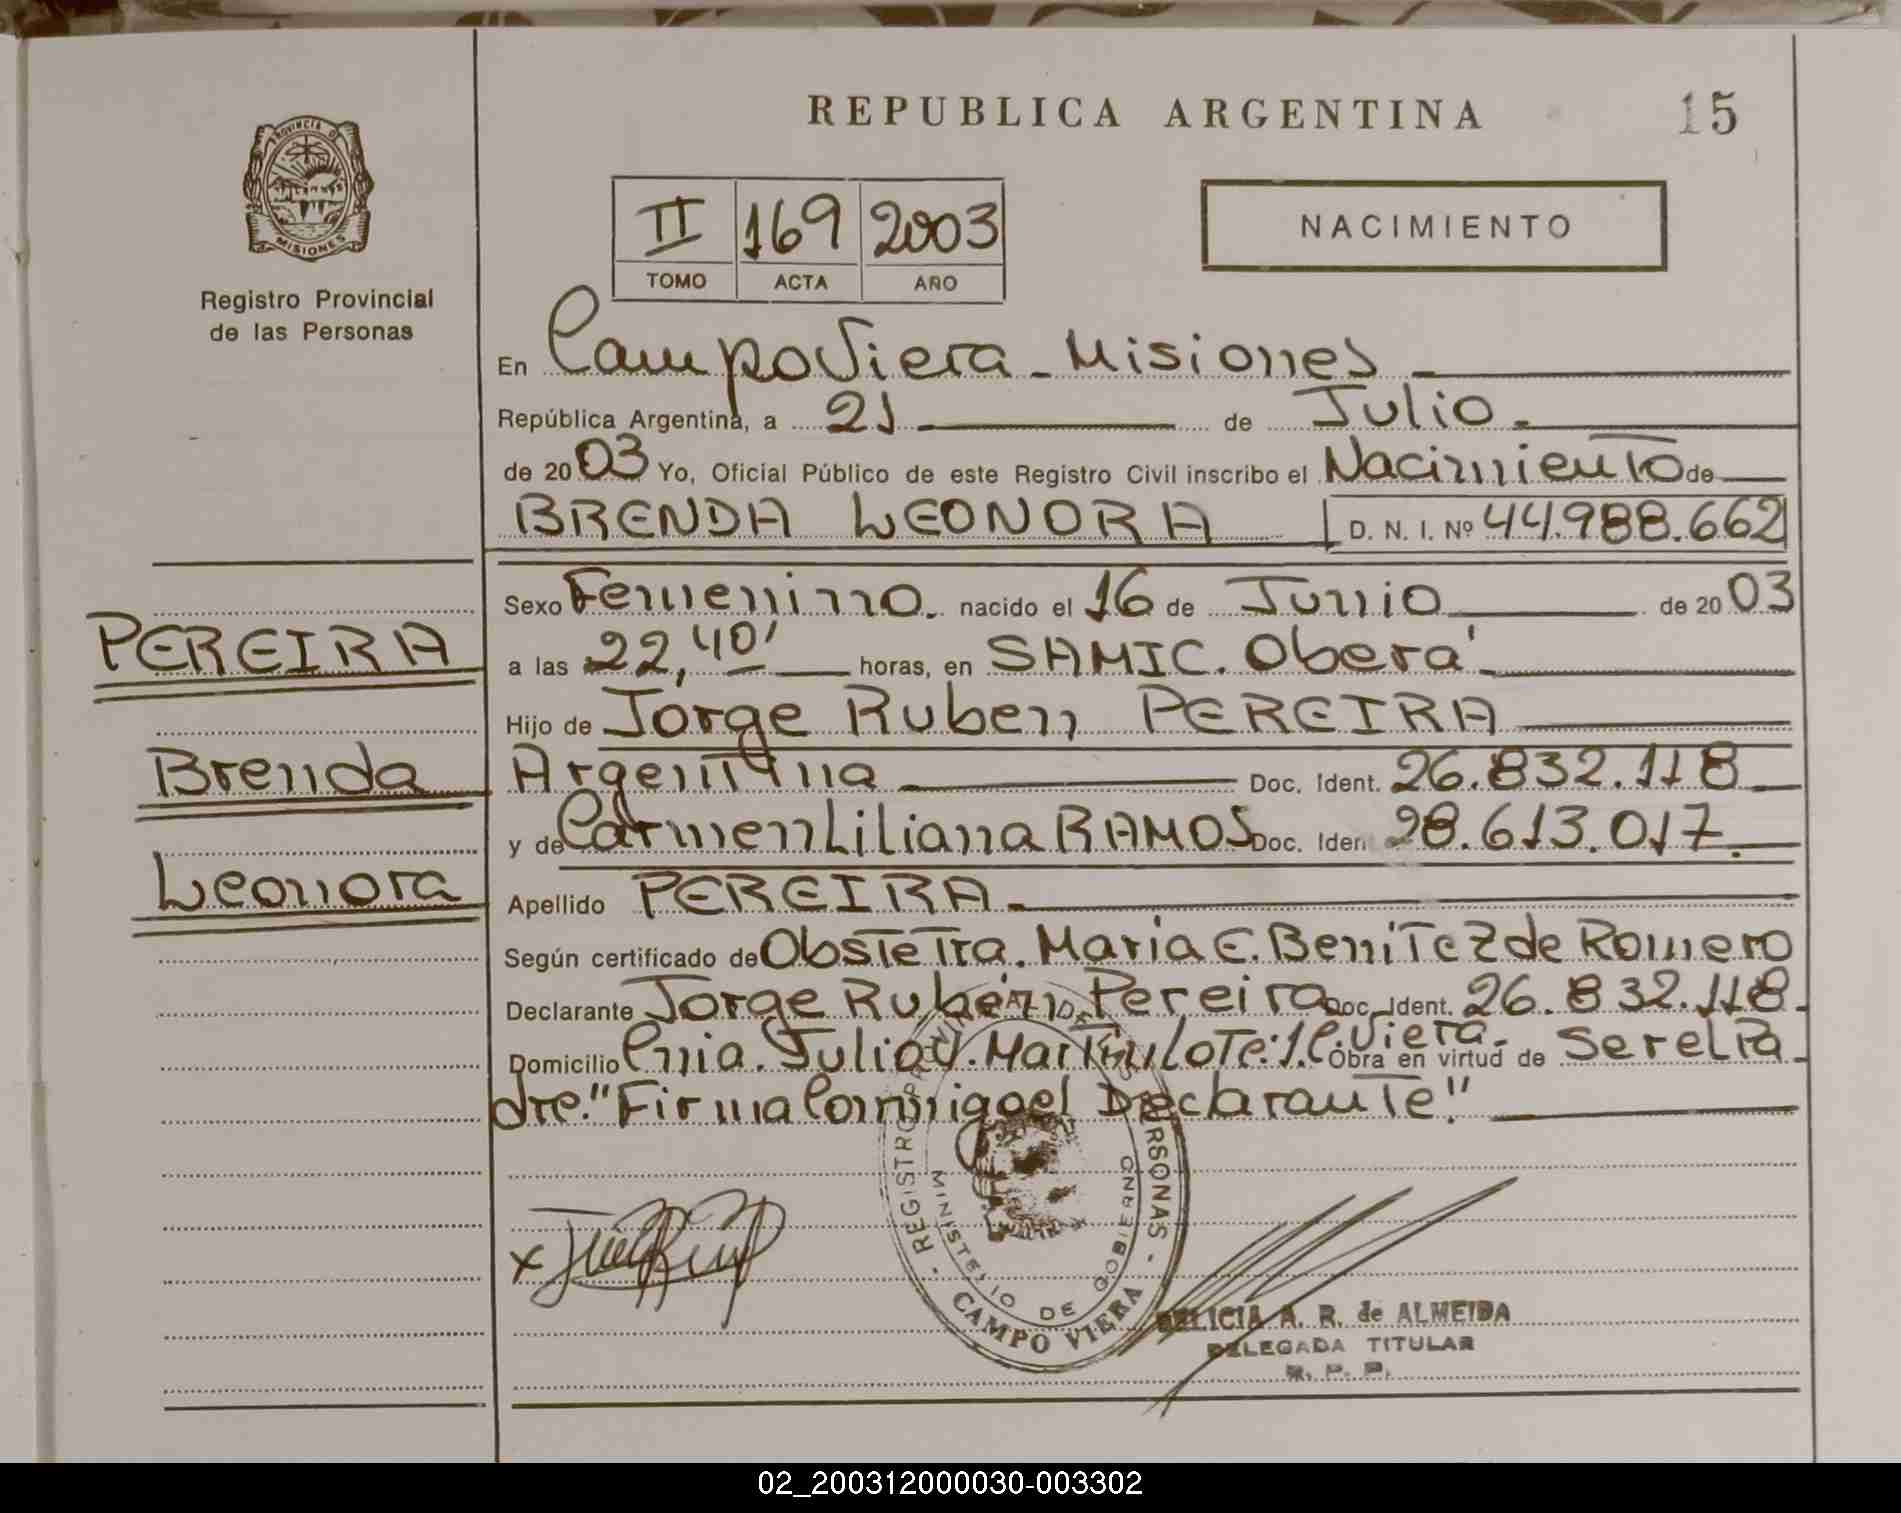 REPUBLICA ARGENTINA
15
PROVINCIA DE
MISIONES
Registro Provincial
de las Personas
II 169 2003
TOMO ACTA AÑO
NACIMIENTO
En Campo Viera - Misiones
República Argentina, a 21 de Julio.
de 2003 Yo, Oficial Público de este Registro Civil inscribo el Nacimiento de
BRENDA LEONORA D. N. I. Nº 44.988.662
Sexo Femenino. nacido el 16 de Junio de 2003
a las 22,40' horas, en SAMIC. Oberá
Hijo de Jorge Ruben PEREIRA
Argentina Doc. Ident. 26.832.118
y de Carmen Liliana RAMOS Doc. Ident 28.613.017.
Apellido PEREIRA.
Según certificado de Obstetra. Maria E. Benitez de Romero
Declarante Jorge Rubén Pereira Doc. Ident. 26.832.118.
Domicilio Cnia. Julio U. Martin Lote: 1. C. Viera. Obra en virtud de Ser el Pa
dre. "Firma Conmigo el Declarante."
PEREIRA
Brenda
Leonora
REGISTRO PROVINCIAL DE LAS PERSONAS
MINISTERIO DE GOBIERNO
CAMPO VIERA
x
DELICIA A. R. de ALMEIDA
DELEGADA TITULAR
R. P. P.
02_200312000030-003302